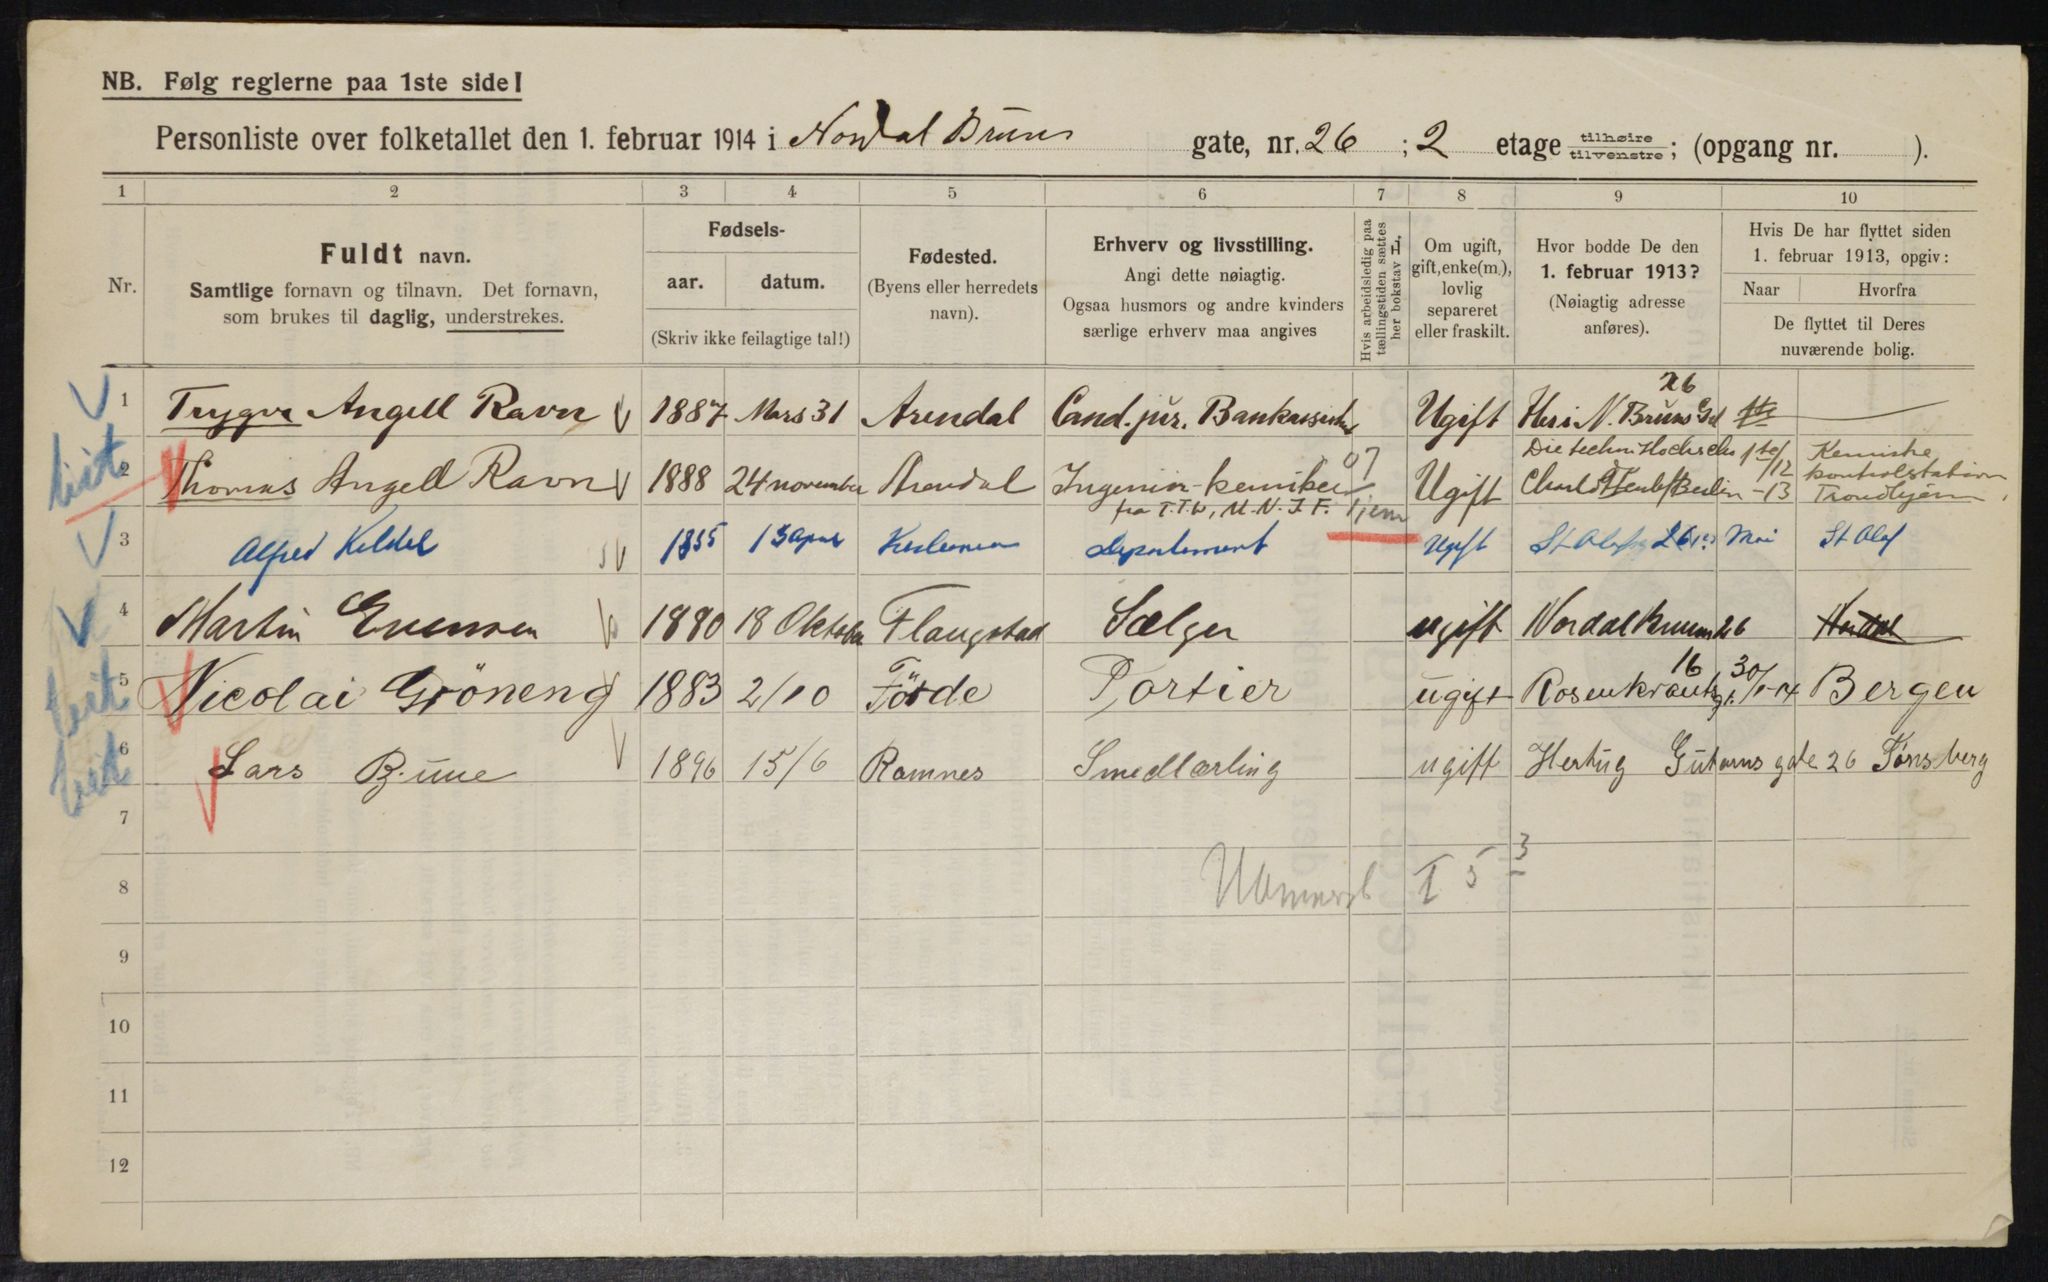 NB. Følg reglerne paa 1ste side!
Personliste over folketallet den 1. februar 1914 i Nordal Bruns gate, nr. 26 ; 2 etage tilhøire tilvenstre; (opgang nr. ).
1 2 3 4 5 6 7 8 9 10
Nr.
Fuldt navn.
Samtlige fornavn og tilnavn. Det fornavn,
som brukes til daglig, understrekes.
Fødsels-
aar. datum.
(Skriv ikke feilagtige tal!)
Fødested.
(Byens eller herredets
navn).
Erhverv og livsstilling.
Angi dette nøiagtig.
Ogsaa husmors og andre kvinders
særlige erhverv maa angives
Hvis arbeidsledig paa
tællingstiden sættes
her bokstav L.
Om ugift,
gift, enke(m.),
lovlig
separeret
eller fraskilt.
Hvor bodde De den
1. februar 1913?
(Nøiagtig adresse
anføres).
Hvis De har flyttet siden
1. februar 1913, opgiv:
Naar Hvorfra
De flyttet til Deres
nuværende bolig.
1 Trygve Angell Ravn 1887 Mars 31 Arendal Cand. jur. Ugift N. Bruns 26
2 Thomas Angell Ravn 1888 24 november Arendal Ingeniør-kemiker Ugift Berlin Kemiske
fra T.T.L., M.N.I.F. kontrolstation
Trondhjem
3 Alfred 1855 Departement Ugift St Olafs Mai St Olaf
4 Martin Evensen 1890 18 Oktober Flaugstad Sælger ugift Nordal Bruuns 26
5 Nicolai Gröneng 1883 2/10 Förde Portier ugift Rosenkrantz 16 30/1-14 Bergen
6 Lars 1896 15/6 Ramnes Smedlærling ugift Hertug Gutorms gate 26 Tønsberg
7
8 I 5 3
9
10
11
12